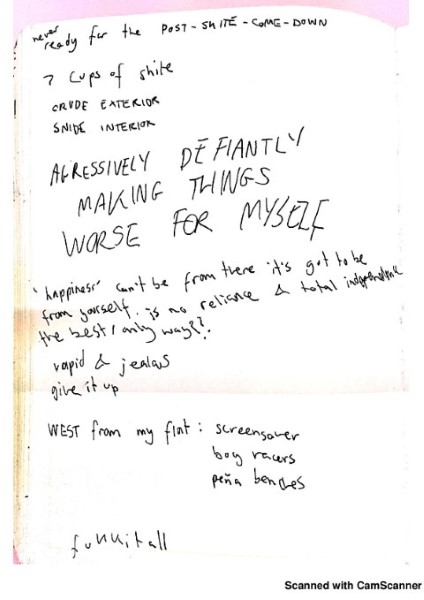 never
ready for the POST-SHITE-COME-DOWN
7 cups of shite
CRUDE EXTERIOR
SNIDE INTERIOR
AGRESSIVELY DEFIANTLY
MAKING THINGS
WORSE FOR MYSELF
'happiness' can't be from there it's got to be
from yourself. is no reliance & total independence
the best/only way??
vapid & jealous
give it up
WEST from my flat: screensaver
boy racers
peña benches
fukkitall
Scanned with CamScanner